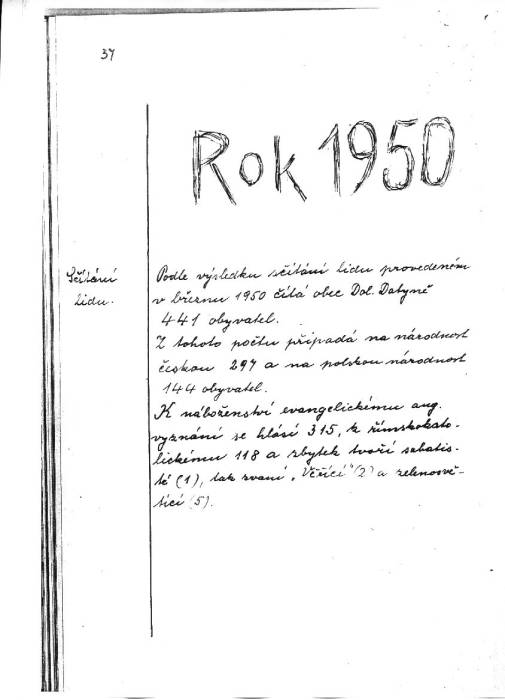 37
Rok 1950
Sčítání
lidu.
Podle výsledku sčítání lidu provedeném
v březnu 1950 čítá obec Dol. Datyně
441 obyvatel.
Z tohoto počtu připadá na národnost
českou 297 a na polskou národnost
144 obyvatel.
K náboženství evangelickému aug.
vyznání se hlásí 315, k římskokato-
lickému 118 a zbytek tvoří sabatis-
té (1), tak zvaní „Věřící" (2) a zelenosvě-
tící (5).